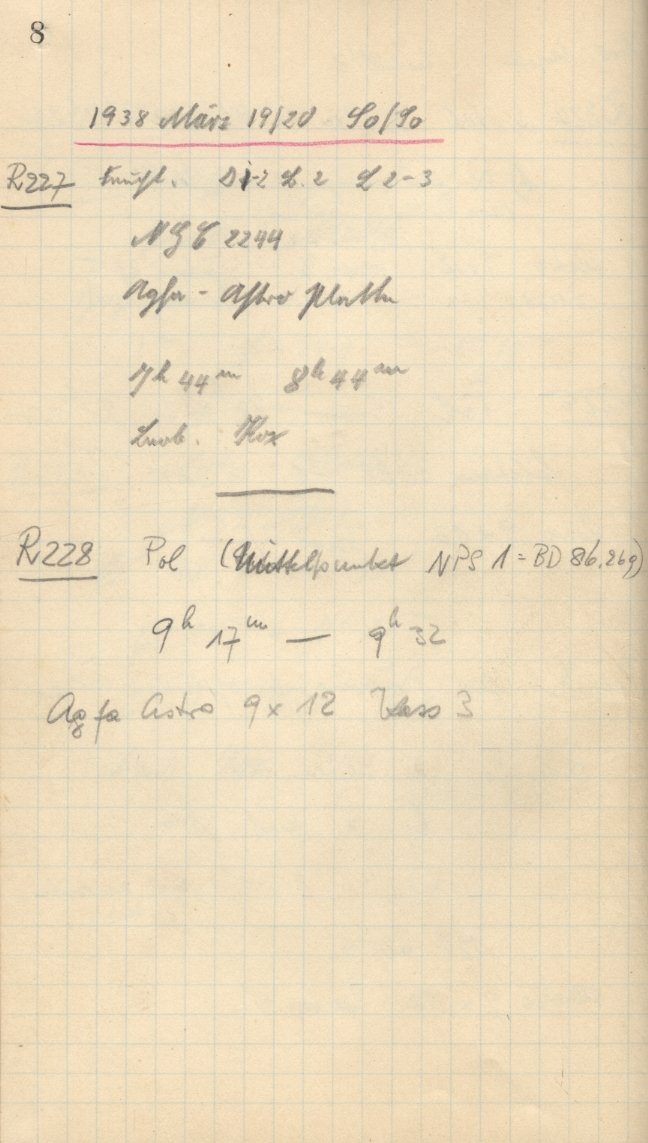 8
1938 März 19/20 So/So
R227 Feucht. D 1-2 S. 2 L 2-3
NGC 2244
Agfa - Astro Platte
7h 44m 8h 44m
Beob.
R228 Pol (Mittelpunkt NPS 1 = BD 86.269)
9h 17m — 9h 32
Agfa Astro 9 x 12 3